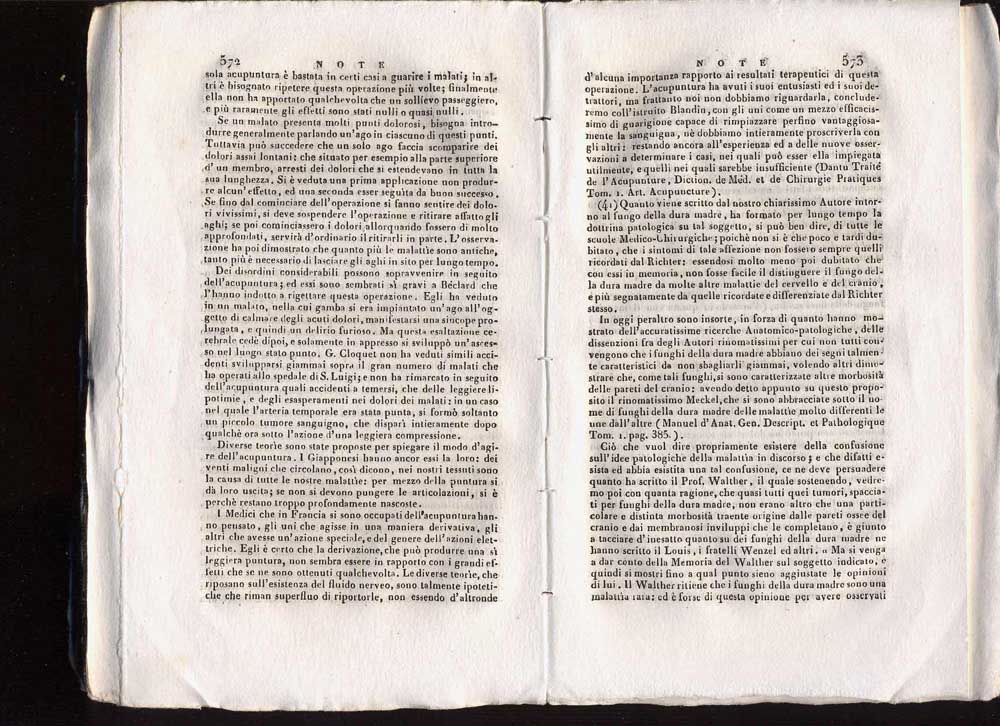 572
NOTE
sola acupuntura è bastata in certi casi a guarire i malati; in al-
tri è bisognato ripetere questa operazione più volte; finalmente
ella non ha apportato qualchevolta che un sollievo passeggiero,
e più raramente gli effetti sono stati nulli o quasi nulli.
Se un malato presenta molti punti dolorosi, bisogna intro-
durre generalmente parlando un'ago in ciascuno di questi punti.
Tuttavia può succedere che un solo ago faccia scomparire dei
dolori assai lontani: che situato per esempio alla parte superiore
d'un membro, arresti dei dolori che si estendevano in tutta la
sua lunghezza. Si è veduta una prima applicazione non produr-
re alcun'effetto, ed una seconda esser seguita da buon successo.
Se fino dal cominciare dell'operazione si fanno sentire dei dolo-
ri vivissimi, si deve sospendere l'operazione e ritirare affatto gli
aghi; se poi cominciassero i dolori allorquando fossero di molto
approfondati, servirà d'ordinario il ritirarli in parte. L'osserva-
zione ha poi dimostrato che quanto più le malattìe sono antiche,
tanto più è necessario di lasciare gli aghi in sito per lungo tempo.
Dei disordini considerabili possono sopravvenire in seguito
dell'acupuntura; ed essi sono sembrati sì gravi a Bèclard che
l'hanno indotto a rigettare questa operazione. Egli ha veduto
in un malato, nella cui gamba si era impiantato un'ago all'og-
getto di calmare degli acuti dolori, manifestarsi una sincope pro-
lungata, e quindi un delirio furioso. Ma questa esaltazione ce-
rebrale cedè dipoi, e solamente in appresso si sviluppò un'asces-
so nel luogo stato punto. G. Cloquet non ha veduti simili acci-
denti svilupparsi giammai sopra il gran numero di malati che
ha operati allo spedale di S. Luigi; e non ha rimarcato in seguito
dell'acupuntura quali accidenti a temersi, che delle leggiere li-
potimie, e degli esasperamenti nei dolori dei malati: in un caso
nel quale l'arteria temporale era stata punta, si formò soltanto
un piccolo tumore sanguigno, che disparì intieramente dopo
qualchè ora sotto l'azione d'una leggiera compressione.
Diverse teorìe sono state proposte per spiegare il modo d'agi-
re dell'acupuntura. I Giapponesi hanno ancor essi la loro: dei
venti maligni che circolano, così dicono, nei nostri tessuti sono
la causa di tutte le nostre malattìe: per mezzo della puntura si
dà loro uscita; se non si devono pungere le articolazioni, si è
perchè restano troppo profondamente nascoste.
I Medici che in Francia si sono occupati dell'acupuntura han-
no pensato, gli uni che agisse in una maniera derivativa, gli
altri che avesse un'azione speciale, e del genere dell'azioni elet-
triche. Egli è certo che la derivazione, che può produrre una sì
leggiera puntura, non sembra essere in rapporto con i grandi ef-
fetti che se ne sono ottenuti qualchevolta. Le diverse teorìe, che
riposano sull'esistenza del fluido nerveo, sono talmente ipoteti-
che che riman superfluo di riportorle, non essendo d'altronde
NOTE
573
d'alcuna importanza rapporto ai resultati terapeutici di questa
operazione. L'acupuntura ha avuti i suoi entusiasti ed i suoi de-
trattori, ma frattanto noi non dobbiamo riguardarla, conclude-
remo coll'istruito Blandin, con gli uni come un mezzo efficacis-
simo di guarigione capace di rimpiazzare perfino vantaggiosa-
mente la sanguigna, nè dobbiamo intieramente proscriverla con
gli altri: restando ancora all'esperienza ed a delle nuove osser-
vazioni a determinare i casi, nei quali può esser ella impiegata
utilmente, e quelli nei quali sarebbe insufficiente (Dantu Traité
de l'Acupunture, Diction. de Méd. et de Chirurgie Pratiques
Tom. 1. Art. Acupuncture).
(41) Quanto viene scritto dal nostro chiarissimo Autore intor-
no al fungo della dura madre, ha formato per lungo tempo la
dottrina patologica su tal soggetto, si può ben dire, di tutte le
scuole Medico-Chirurgiche; poichè non si è che poco e tardi du-
bitato, che i sintomi di tale affezione non fossero sempre quelli
ricordati dal Richter: essendosi molto meno poi dubitato che
con essi in memoria, non fosse facile il distinguere il fungo del-
la dura madre da molte altre malattìe del cervello e del cranio,
e più segnatamente da quelle ricordate e differenziate dal Richter
stesso.
In oggi peraltro sono insorte, in forza di quanto hanno mo-
strato dell'accuratissime ricerche Anatomico-patologiche, delle
dissenzioni fra degli Autori rinomatissimi per cui non tutti con-
vengono che i funghi della dura madre abbiano dei segni talmen-
te caratteristici da non sbagliarli giammai, volendo altri dimo-
strare che, come tali funghi, si sono caratterizzate altre morbosità
delle pareti del cranio: avendo detto appunto su questo propo-
sito il rinomatissimo Meckel, che si sono abbracciate sotto il no-
me di funghi della dura madre delle malattìe molto differenti le
une dall'altre (Manuel d'Anat. Gen. Descript. et Pathologique
Tom. 1. pag. 385.).
Ciò che vuol dire propriamente esistere della confusione
sull'idee patologiche della malattìa in discorso; e che difatti e-
sista ed abbia esistita una tal confusione, ce ne deve persuadere
quanto ha scritto il Prof. Walther, il quale sostenendo, vedre-
mo poi con quanta ragione, che quasi tutti quei tumori, spaccia-
ti per funghi della dura madre, non erano altro che una parti-
colare e distinta morbosità traente origine dalle pareti ossee del
cranio e dai membranosi inviluppi che le completano, è giunto
a tacciare d'inesatto quanto su dei funghi della dura madre ne
hanno scritto il Louis, i fratelli Wenzel ed altri. « Ma si venga
a dar conto della Memoria del Walther sul soggetto indicato, e
quindi si mostri fino a qual punto sieno aggiustate le opinioni
di lui. Il Walther ritiene che i funghi della dura madre sono una
malattìa rara: ed è forse di questa opinione per avere osservati